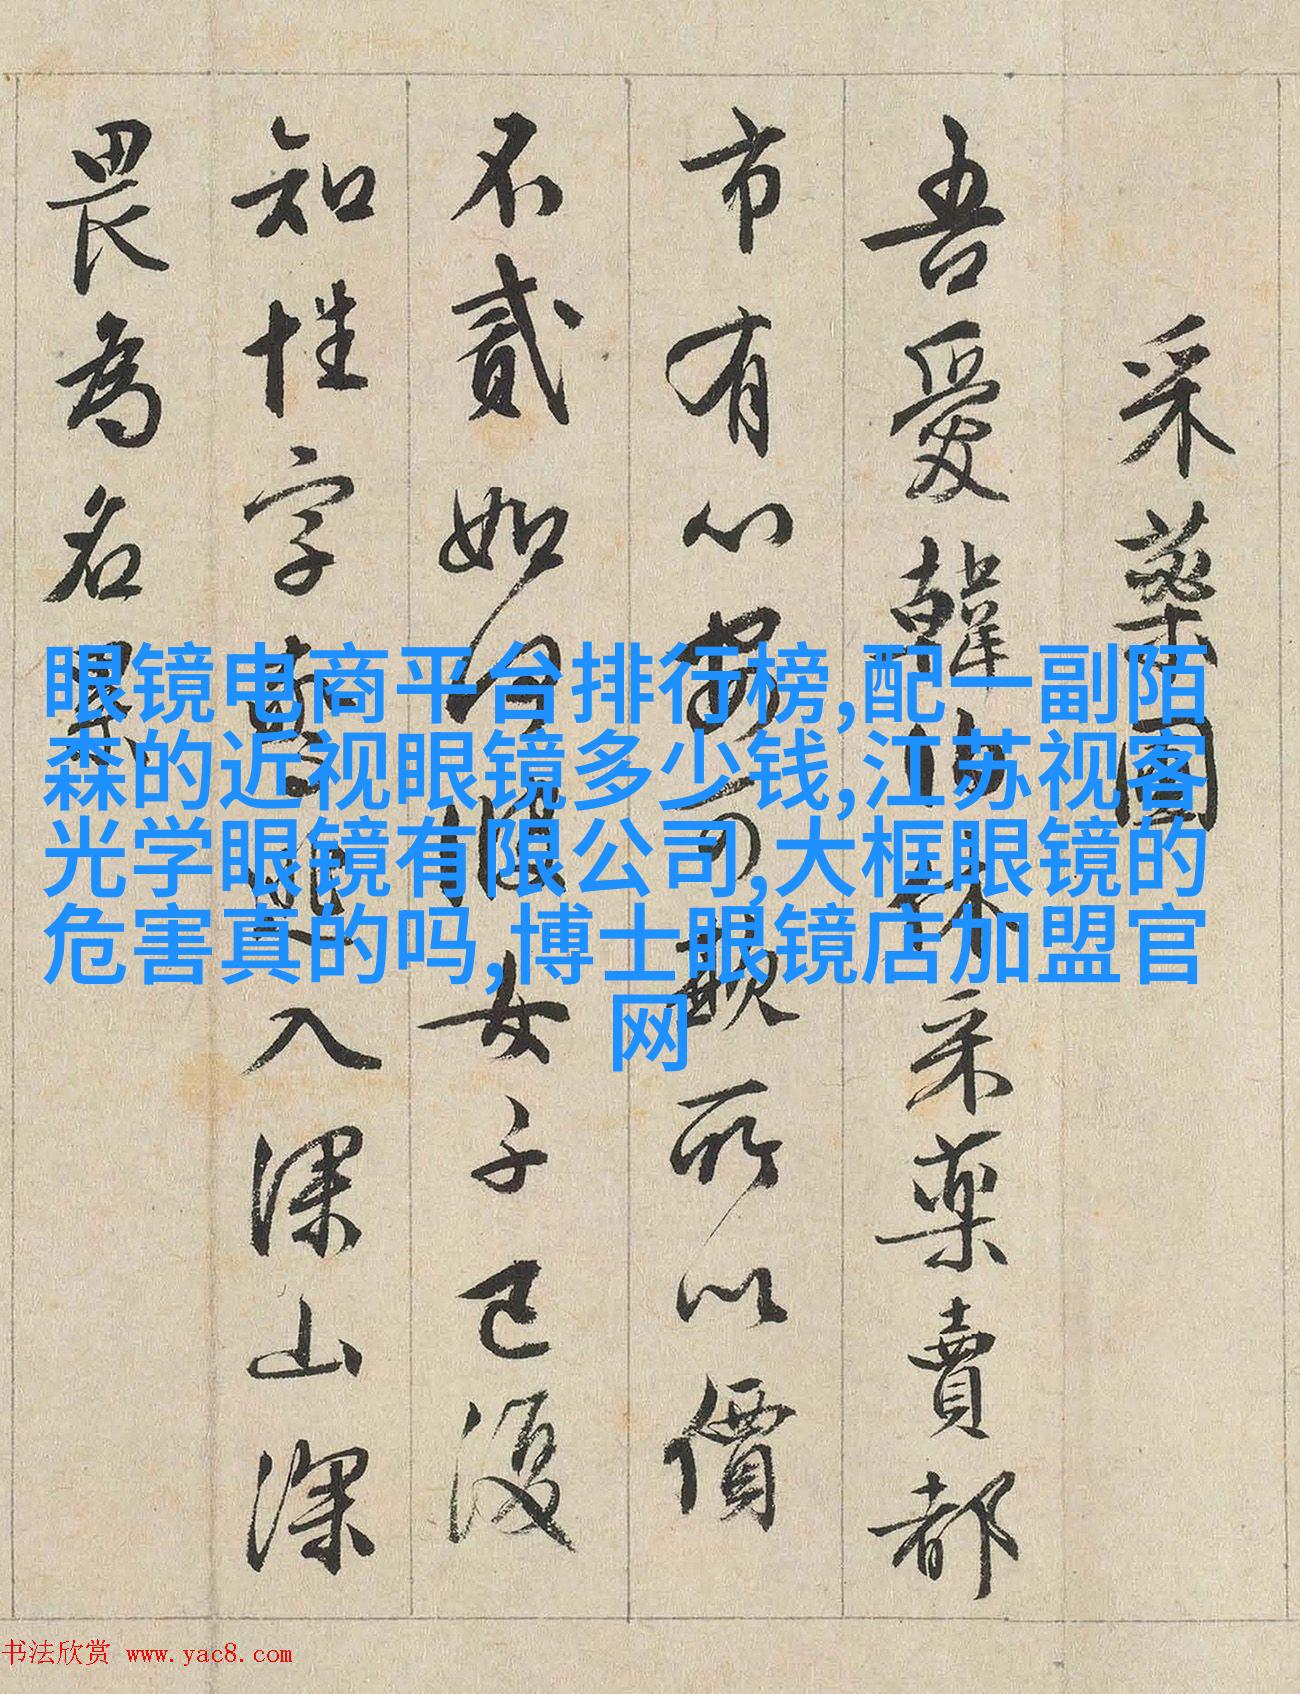 采藥圖
吾愛韓伯休采藥賣都
市有心可所以價
不貳如何女子已復
知性字入深山深
畏為名累
眼镜电商平台排行榜,配一副陌
森的近视眼镜多少钱,江苏视客
光学眼镜有限公司,大框眼镜的
危害真的吗,博士眼镜店加盟官
网
书法欣赏 www.yac8.com